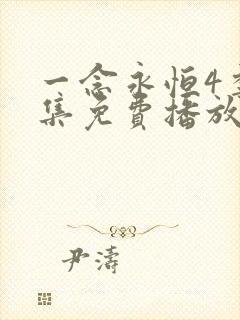 一念永恒4
集免费播放
尹濤